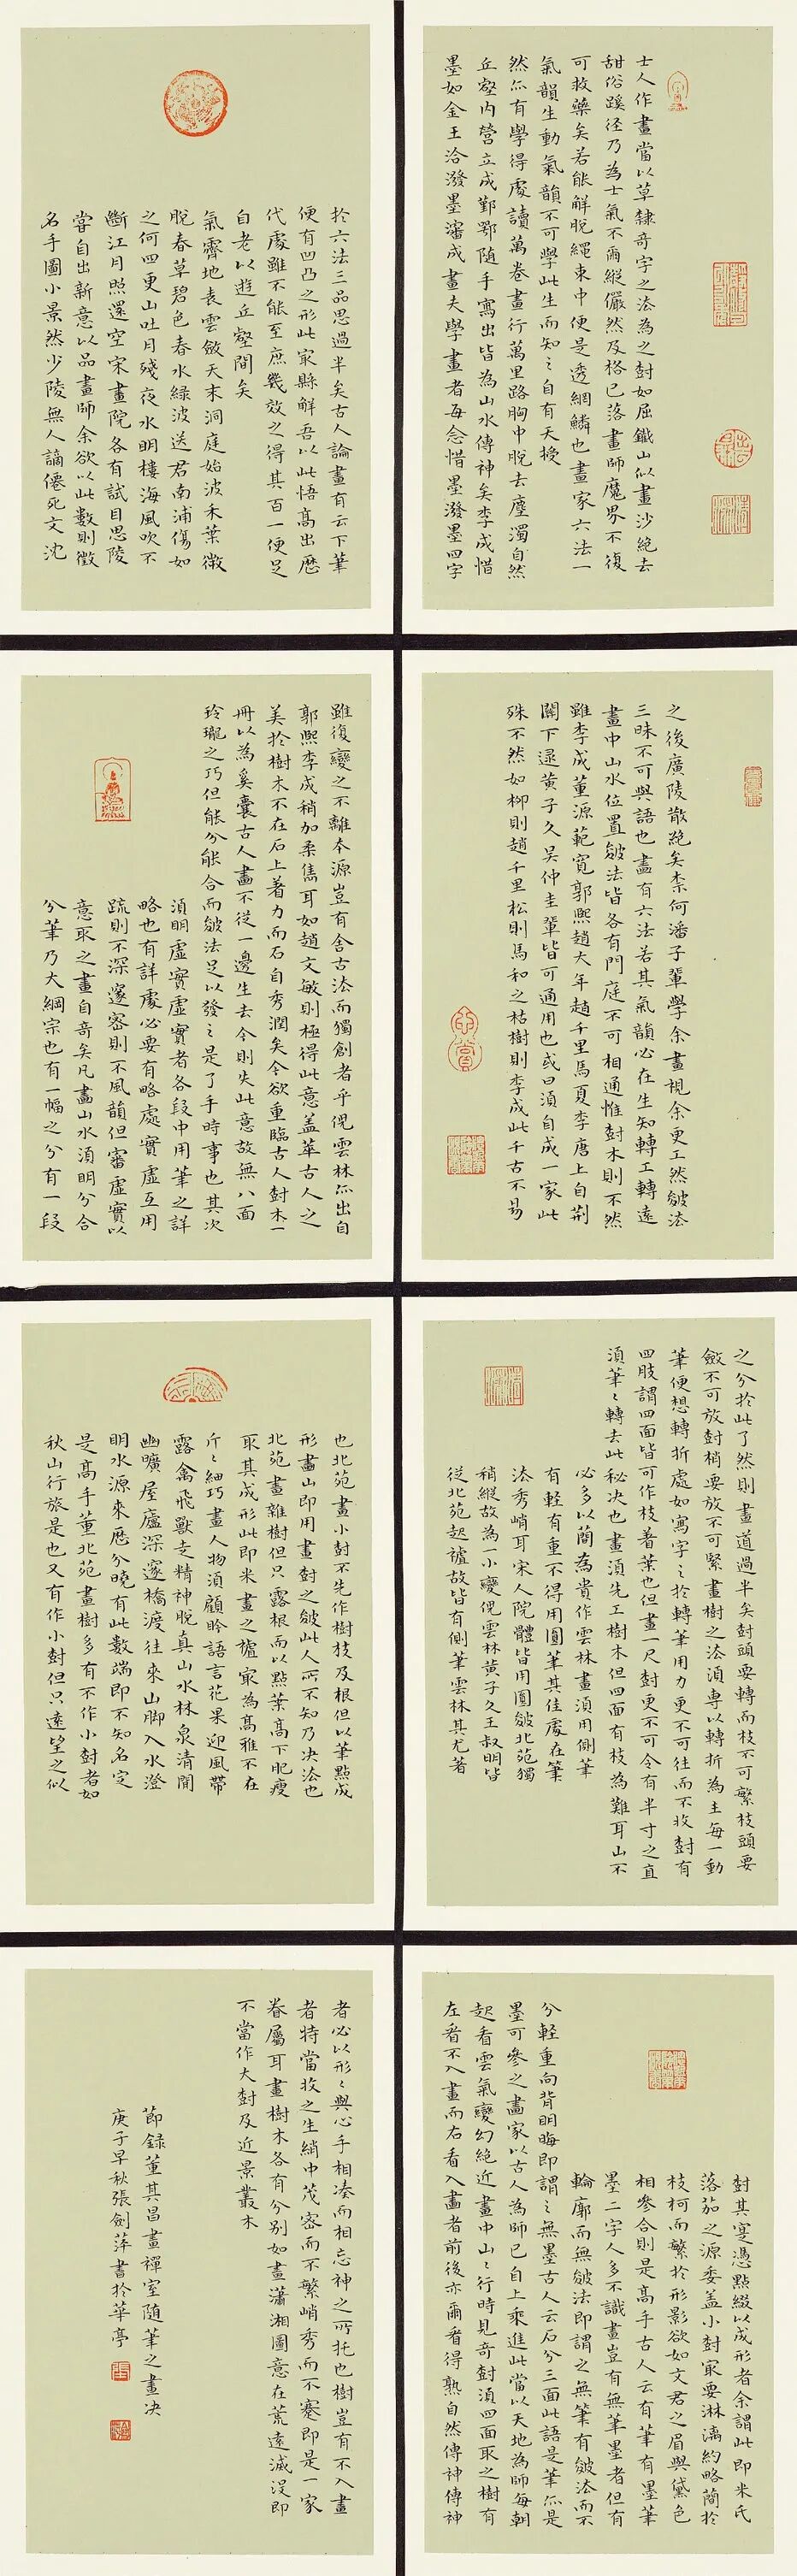 士人作畫當以草隸奇字之法為之尌如屈鐵山似畫沙絕去
甜俗蹊径乃為士氣不爾縱儼然及格已落畫師魔界不復
可救藥矣若能解脫繩束中便是透網鱗也畫家六法一
氣韻生動氣韻不可學此生而知之自有天授
然亦有學得處讀萬卷畫行萬里路胸中脫去塵濁自然
丘壑內營立成鄞鄂隨手寫出皆為山水傳神矣李成惜
墨如金王洽潑墨瀋成畫夫學畫者每念惜墨潑墨四字
於六法三品思過半矣古人論畫有云下筆
便有凹凸之形此最縣解吾以此悟高出歷
代處雖不能至庶幾效之得其百一便足
自老以遊丘壑間矣
氣霽地表雲斂天末洞庭始波木葉微
脫春草碧色春水綠波送君南浦傷如
之何四更山吐月殘夜水明樓海風吹不
斷江月照還空宋畫院各有試目思陵
嘗自出新意以品畫師余欲以此數則徵
名手圖小景然少陵無人謫僊死文沈
之後廣陵散絕矣柰何潘子輩學余畫視余更工然皴法
三昧不可與語也畫有六法若其氣韻必在生知轉工轉遠
畫中山水位置皴法皆各有門庭不可相通惟尌木則不然
雖李成董源範寬郭熙趙大年趙千里馬夏李唐上自荆
關下逮黃子久吳仲圭輩皆可通用也或曰須自成一家此
殊不然如柳則趙千里松則馬和之枯樹則李成此千古不易
雖復變之不離本源豈有舍古法而獨創者乎倪雲林亦出自
郭熙李成稍加柔雋耳如趙文敏則極得此意蓋萃古人之
美於樹木不在石上着力而石自秀潤矣今欲重臨古人尌木一
冊以為奚囊古人畫不從一邊生去今則失此意故無八面
玲瓏之巧但能分能合而皴法足以發之是了手時事也其次
須明虛實虛實者各段中用筆之詳
略也有詳處必要有略處實虛互用
疏則不深邃密則不風韻但審虛實以
意取之畫自奇矣凡畫山水須明分合
分筆乃大綱宗也有一幅之分有一段
之分於此了然則畫道過半矣尌頭要轉而枝不可繁枝頭要
斂不可放尌梢要放不可緊畫樹之法須專以轉折為主每一動
筆便想轉折處如寫字之於轉筆用力更不可往而不收尌有
四肢謂四面皆可作枝着葉也但畫一尺尌更不可令有半寸之直
須筆筆轉去此秘决也畫須先工樹木但四面有枝為難耳山不
必多以簡為貴作雲林畫須用側筆
有輕有重不得用圓筆其佳處在筆
法秀峭耳宋人院體皆用圓皴北苑獨
稍縱故為一小變倪雲林黃子久王叔明皆
從北苑起祧故皆有側筆雲林其尤著
也北苑畫小尌不先作樹枝及根但以筆點成
形畫山即用畫尌之皴此人所不知乃决法也
北苑畫雜樹但只露根而以點葉高下肥瘦
取其成形此即米畫之祧最為高雅不在
斤斤細巧畫人物須顧盻語言花果迎風帶
露禽飛獸走精神脫真山水林泉清閒
幽曠屋廬深邃橋渡往來山脚入水澄
明水源來歷分曉有此數端即不知名定
是高手董北苑畫樹多有不作小尌者如
秋山行旅是也又有作小尌但只遠望之似
尌其寔憑點綴以成形者余謂此即米氏
落茄之源委蓋小尌最要淋漓約略簡於
枝柯而繁於形影欲如文君之眉與黛色
相參合則是高手古人云有筆有墨筆
墨二字人多不識畫豈有無筆墨者但有
輪廓而無皴法即謂之無筆有皴法而不
分輕重向背明晦即謂之無墨古人云石分三面此語是筆亦是
墨可參之畫家以古人為師已自上乘進此當以天地為師每朝
起看雲氣變幻絕近畫中山山行時見奇尌須四面取之樹有
左看不入畫而右看入畫者前後亦爾看得熟自然傳神傳神
者必以形形與心手相凑而相忘神之所托也樹豈有不入畫
者特當收之生綃中茂密而不繁峭秀而不蹇即是一家
眷屬耳畫樹木各有分別如畫瀟湘圖意在荒遠滅沒即
不當作大尌及近景叢木
節録董其昌畫禪室隨筆之畫决
庚子早秋張劍萍書於華亭